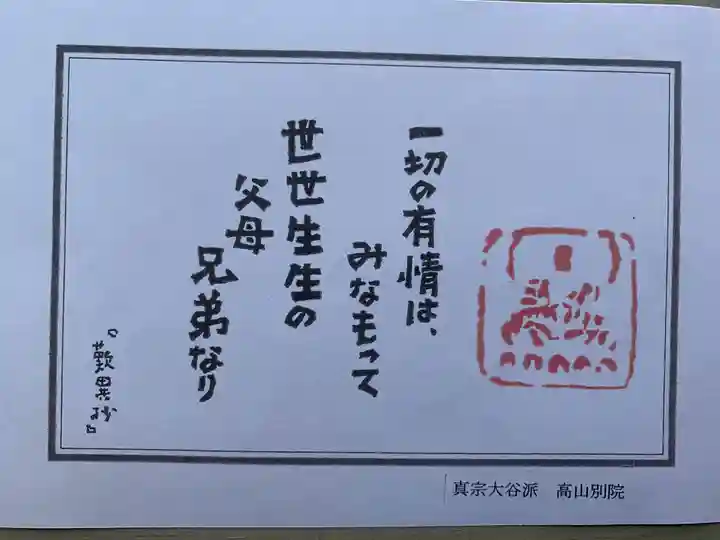 一切の有情は、
みなもって
世世生生の
父母
兄弟なり
『歎異抄』
真宗大谷派 高山別院